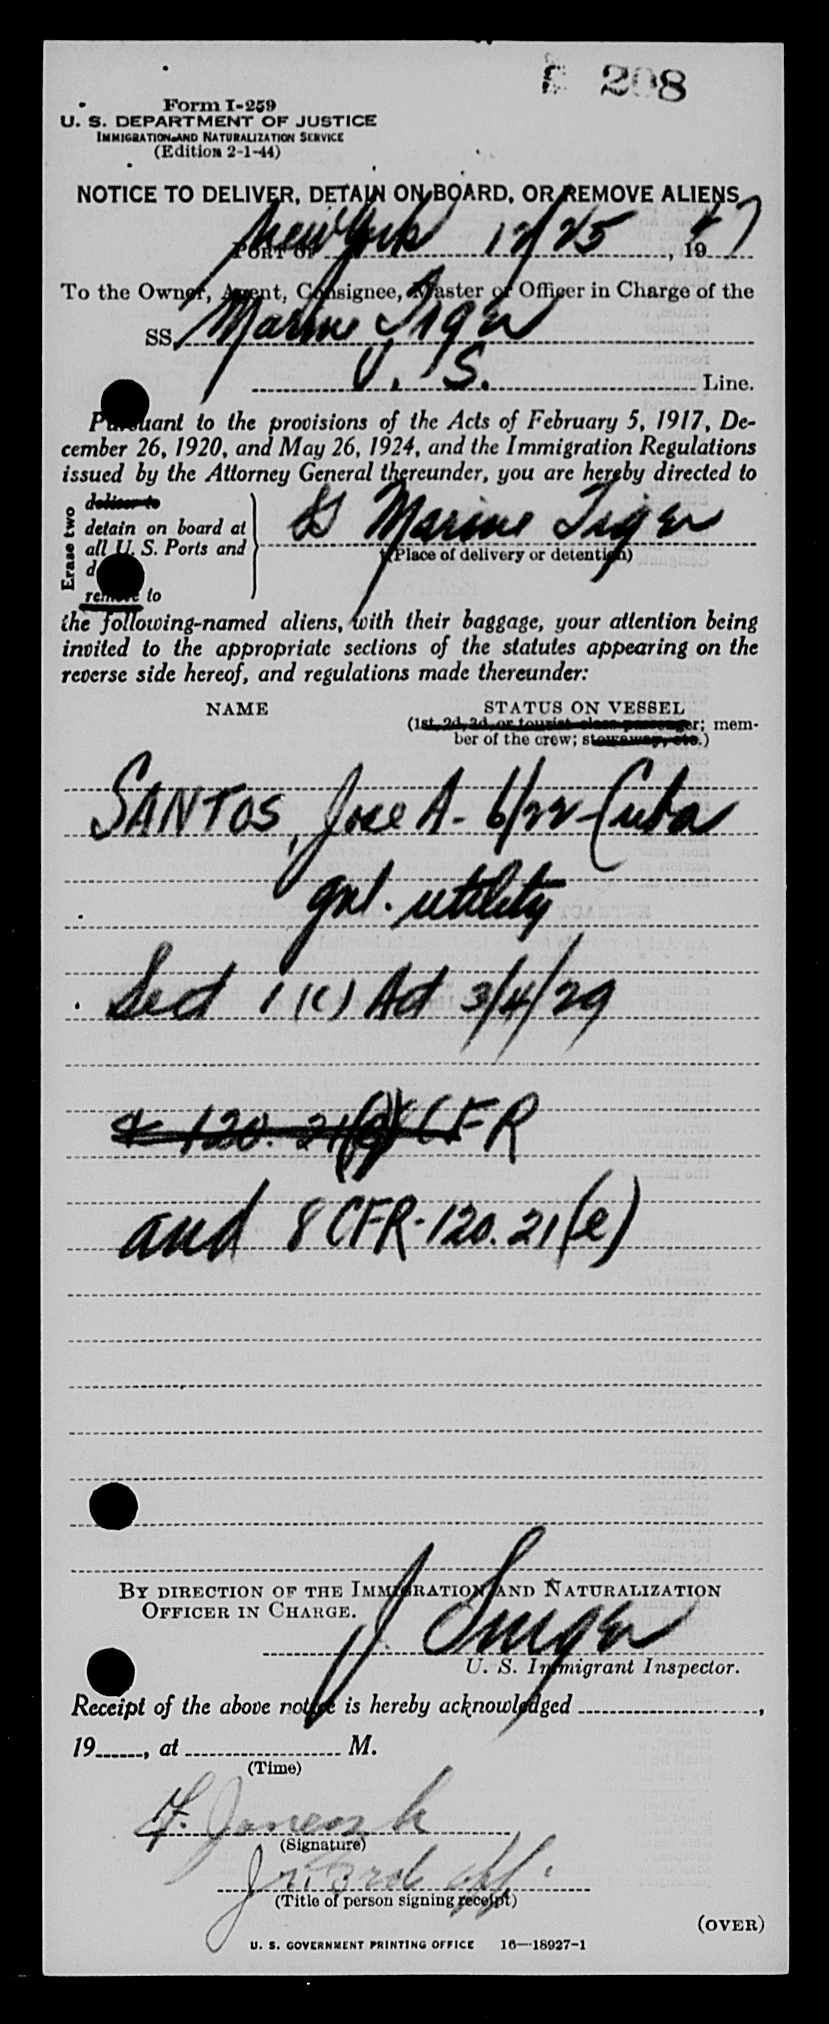 208
Form I-259
U. S. DEPARTMENT OF JUSTICE
IMMIGRATION AND NATURALIZATION SERVICE
(Edition 2-1-44)
NOTICE TO DELIVER, DETAIN ON BOARD, OR REMOVE ALIENS
PORT OF New York 12/25, 1947
To the Owner, Agent, Consignee, Master or Officer in Charge of the
SS. Marine Tiger
U. S. Line.
Pursuant to the provisions of the Acts of February 5, 1917, De-
cember 26, 1920, and May 26, 1924, and the Immigration Regulations
issued by the Attorney General thereunder, you are hereby directed to
Erase two
deliver to
detain on board at
all U. S. Ports and
remove to
SS Marine Tiger
(Place of delivery or detention)
the following-named aliens, with their baggage, your attention being
invited to the appropriate sections of the statutes appearing on the
reverse side hereof, and regulations made thereunder:
NAME STATUS ON VESSEL
(1st, 2d, 3d, or tourist class passenger; mem-
ber of the crew; stowaway, etc.)
SANTOS, Jose A- 6/22- Cuba
gnl. utility
Sect 1 (c) Act 3/4/29
& 120. 21 CFR
and 8 CFR-120.21(e)
BY DIRECTION OF THE IMMIGRATION AND NATURALIZATION
OFFICER IN CHARGE.
J Singer
U. S. Immigrant Inspector.
Receipt of the above notice is hereby acknowledged ,
19 , at M.
(Time)
F.
(Signature)
Jr. 3rd off.
(Title of person signing receipt)
(OVER)
U. S. GOVERNMENT PRINTING OFFICE 16—18927-1